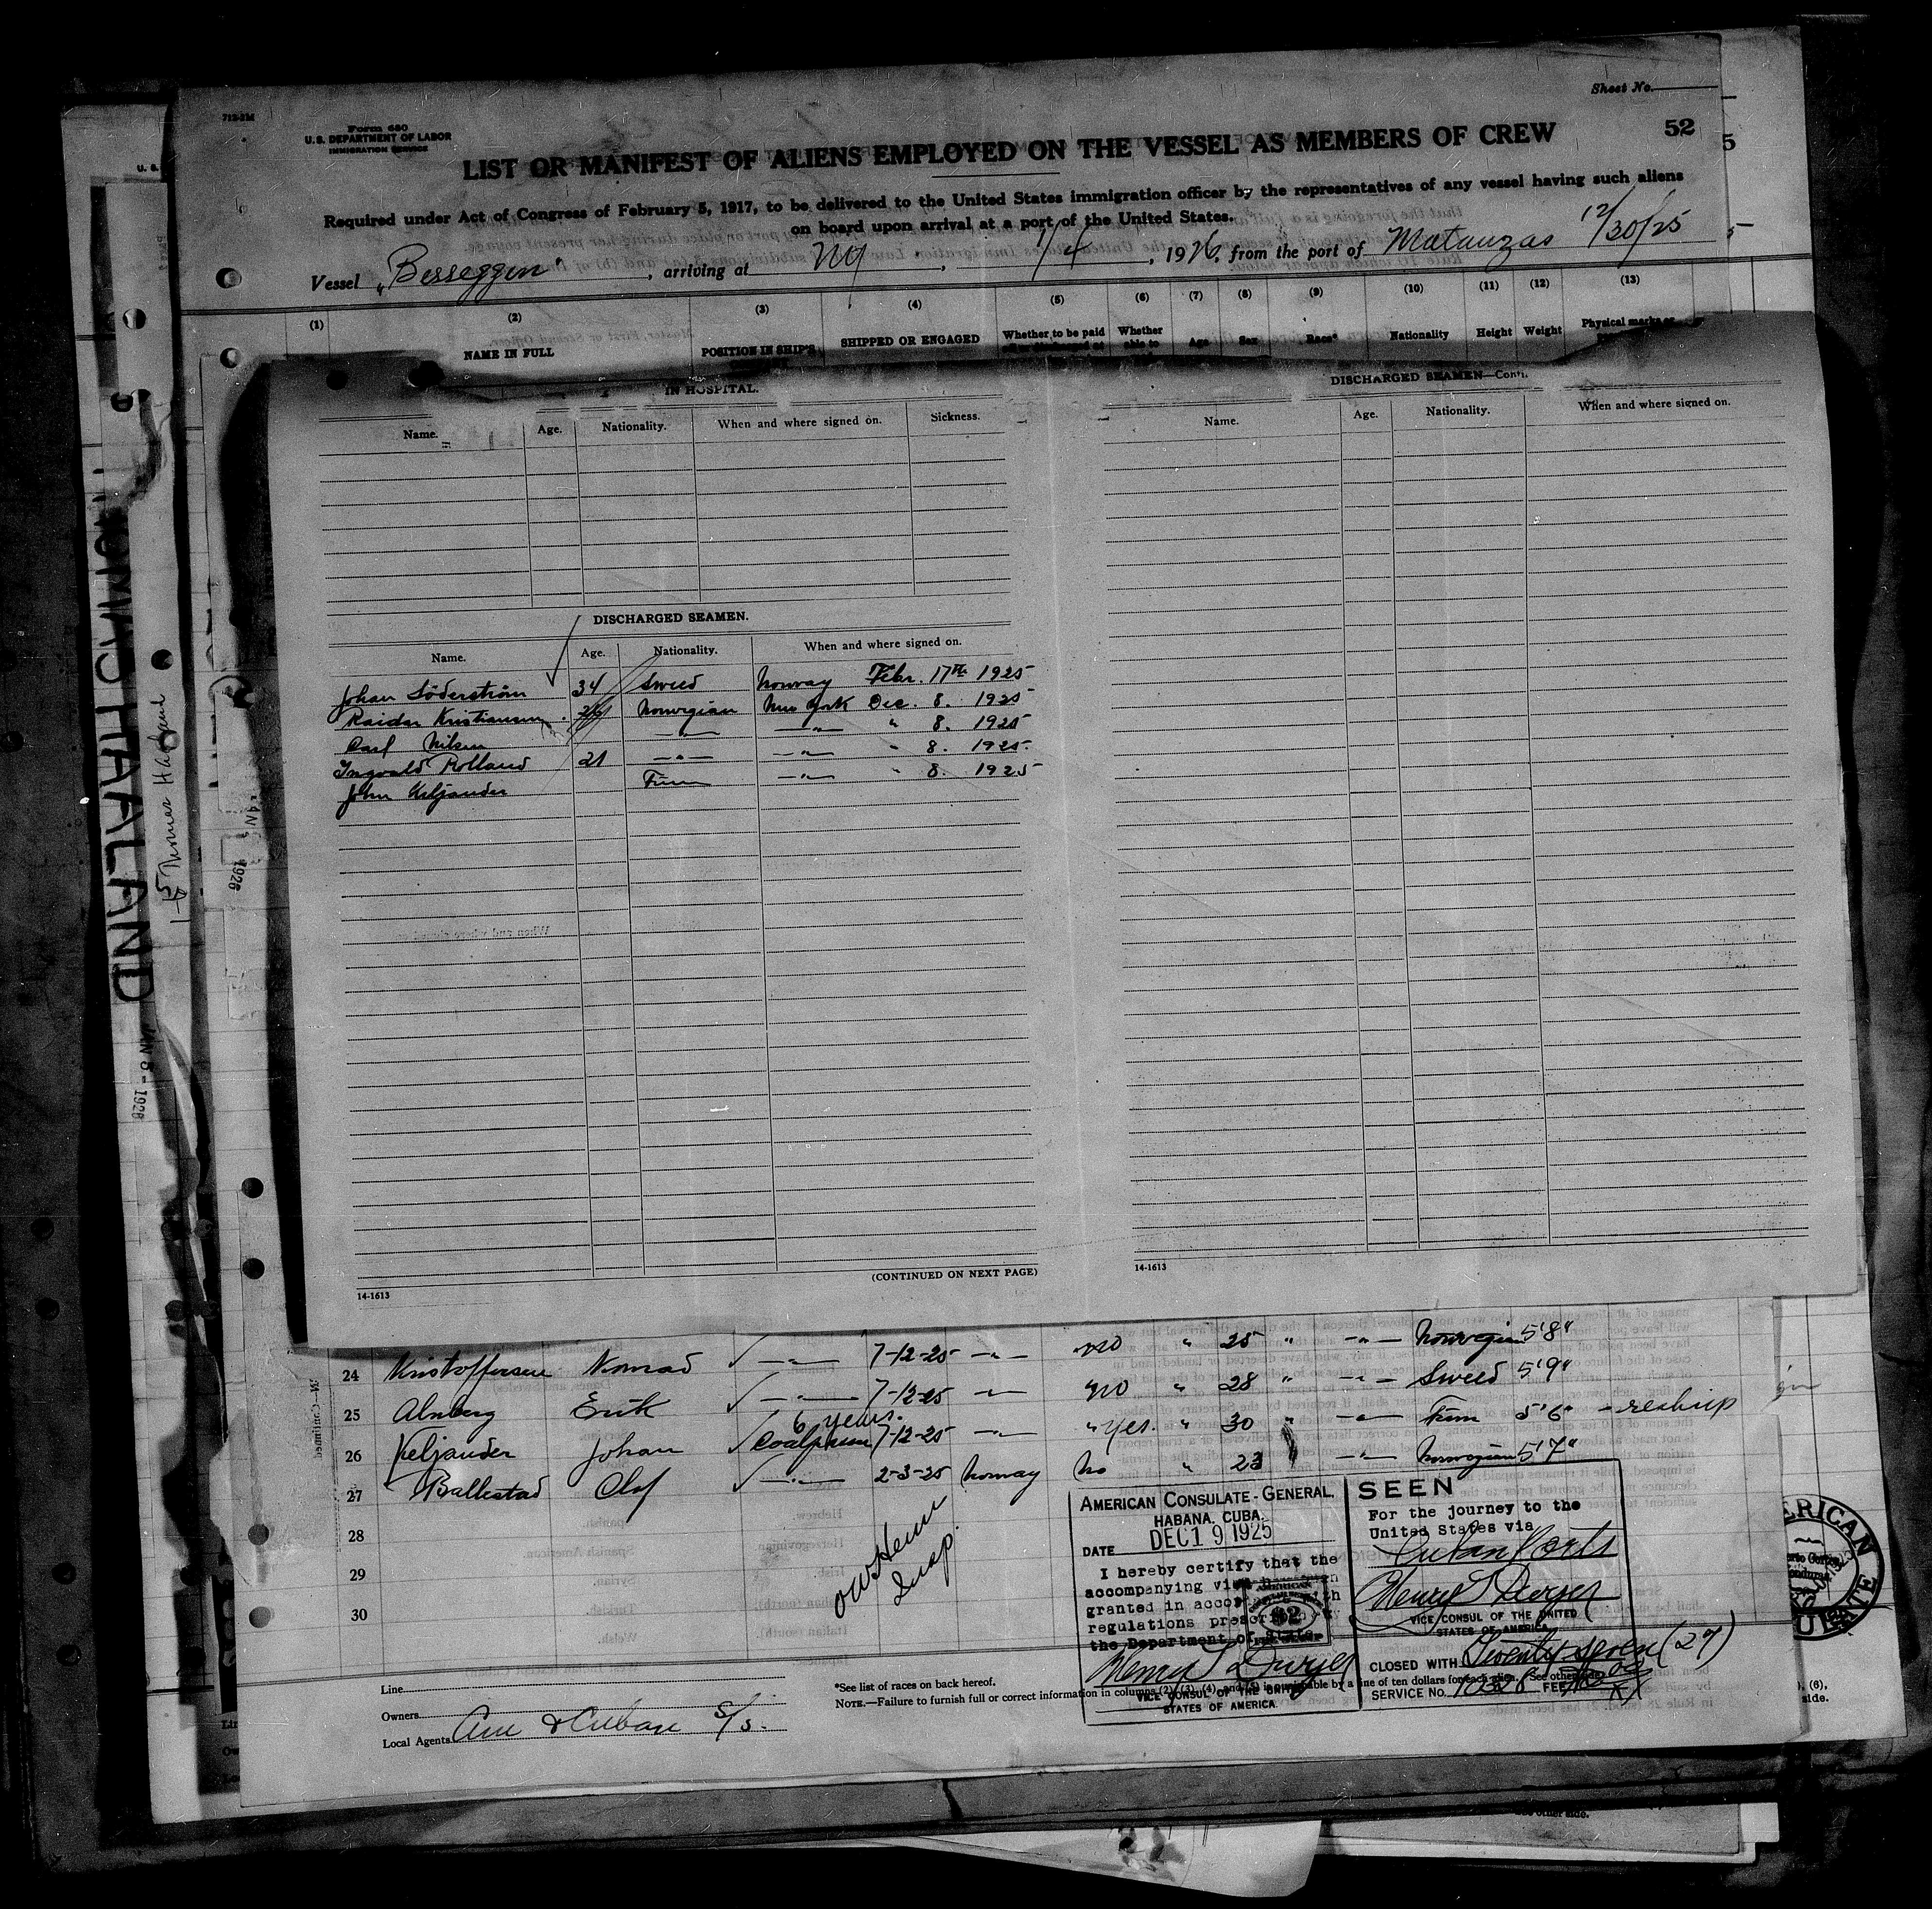 Sheet No.
712-2M
Form 680
U. S. DEPARTMENT OF LABOR
IMMIGRATION SERVICE
52
5
U. S.
LIST OR MANIFEST OF ALIENS EMPLOYED ON THE VESSEL AS MEMBERS OF CREW
Required under Act of Congress of February 5, 1917, to be delivered to the United States immigration officer by the representatives of any vessel having such aliens
on board upon arrival at a port of the United States.
Vessel "Besseggen", arriving at NY, 1/4, 1926, from the port of Matanzas 12/30/25
(1) (2) (3) (4) (5) (6) (7) (8) (9) (10) (11) (12) (13)
NAME IN FULL POSITION IN SHIP'S SHIPPED OR ENGAGED Whether to be paid Whether able to Age Sex Race* Nationality Height Weight Physical marks or
IN HOSPITAL.
Name. Age. Nationality. When and where signed on. Sickness.
DISCHARGED SEAMEN—Conti.
Name. Age. Nationality. When and where signed on.
DISCHARGED SEAMEN.
Name. Age. Nationality. When and where signed on.
Johan Söderström 34 Sweed Norway Febr. 17th 1925
Raidar Kristiansen 26 Norwegian New York Dec. 8. 1925
Carl Nilsen —"— —"— " 8. 1925
Ingvald Rolland 21 —"— —"— " 8. 1925.
John Keljander Finn —"— " 8. 1925
(CONTINUED ON NEXT PAGE)
14-1613
14-1613
THOMAS HAALAND
Thomas Haaland
JAN 5 - 1926
1926
24 Kristoffersen Konrad —"— 7-12-25 —"— no " 25 " —"— Norwegian 5'8"
25 Almberg Erik —"— 7-12-25 —"— no " 28 " —"— Sweed 5'9"
6 years.
26 Keljander Johan Coalpasser 7-12-25 —"— " Yes. " 30 " —"— Finn 5'6" - reship
27 Ballestad Olof —"— 2-3-25 Norway No " 23 " —"— Norwegian 5'7"
28
29
30
Insp.
AMERICAN CONSULATE-GENERAL,
HABANA. CUBA.
DATE DEC 19 1925
I hereby certify that the
accompanying visa has been
granted in accordance with
regulations prescribed by
the Department of State
Henry T Dwyer
VICE CONSUL OF THE UNITED
STATES OF AMERICA
SEEN
For the journey to the
United States via
Cuban Ports
Henry T Dwyer
VICE CONSUL OF THE UNITED
STATES OF AMERICA
CLOSED WITH Twenty seven (27)
SERVICE No. 10328 FEE
Line
Owners
Local Agents Am & Cuban S/S.
*See list of races on back hereof.
NOTE.—Failure to furnish full or correct information in columns (2), (3), (4), and (5) is punishable by a fine of ten dollars for each alien. See other side.